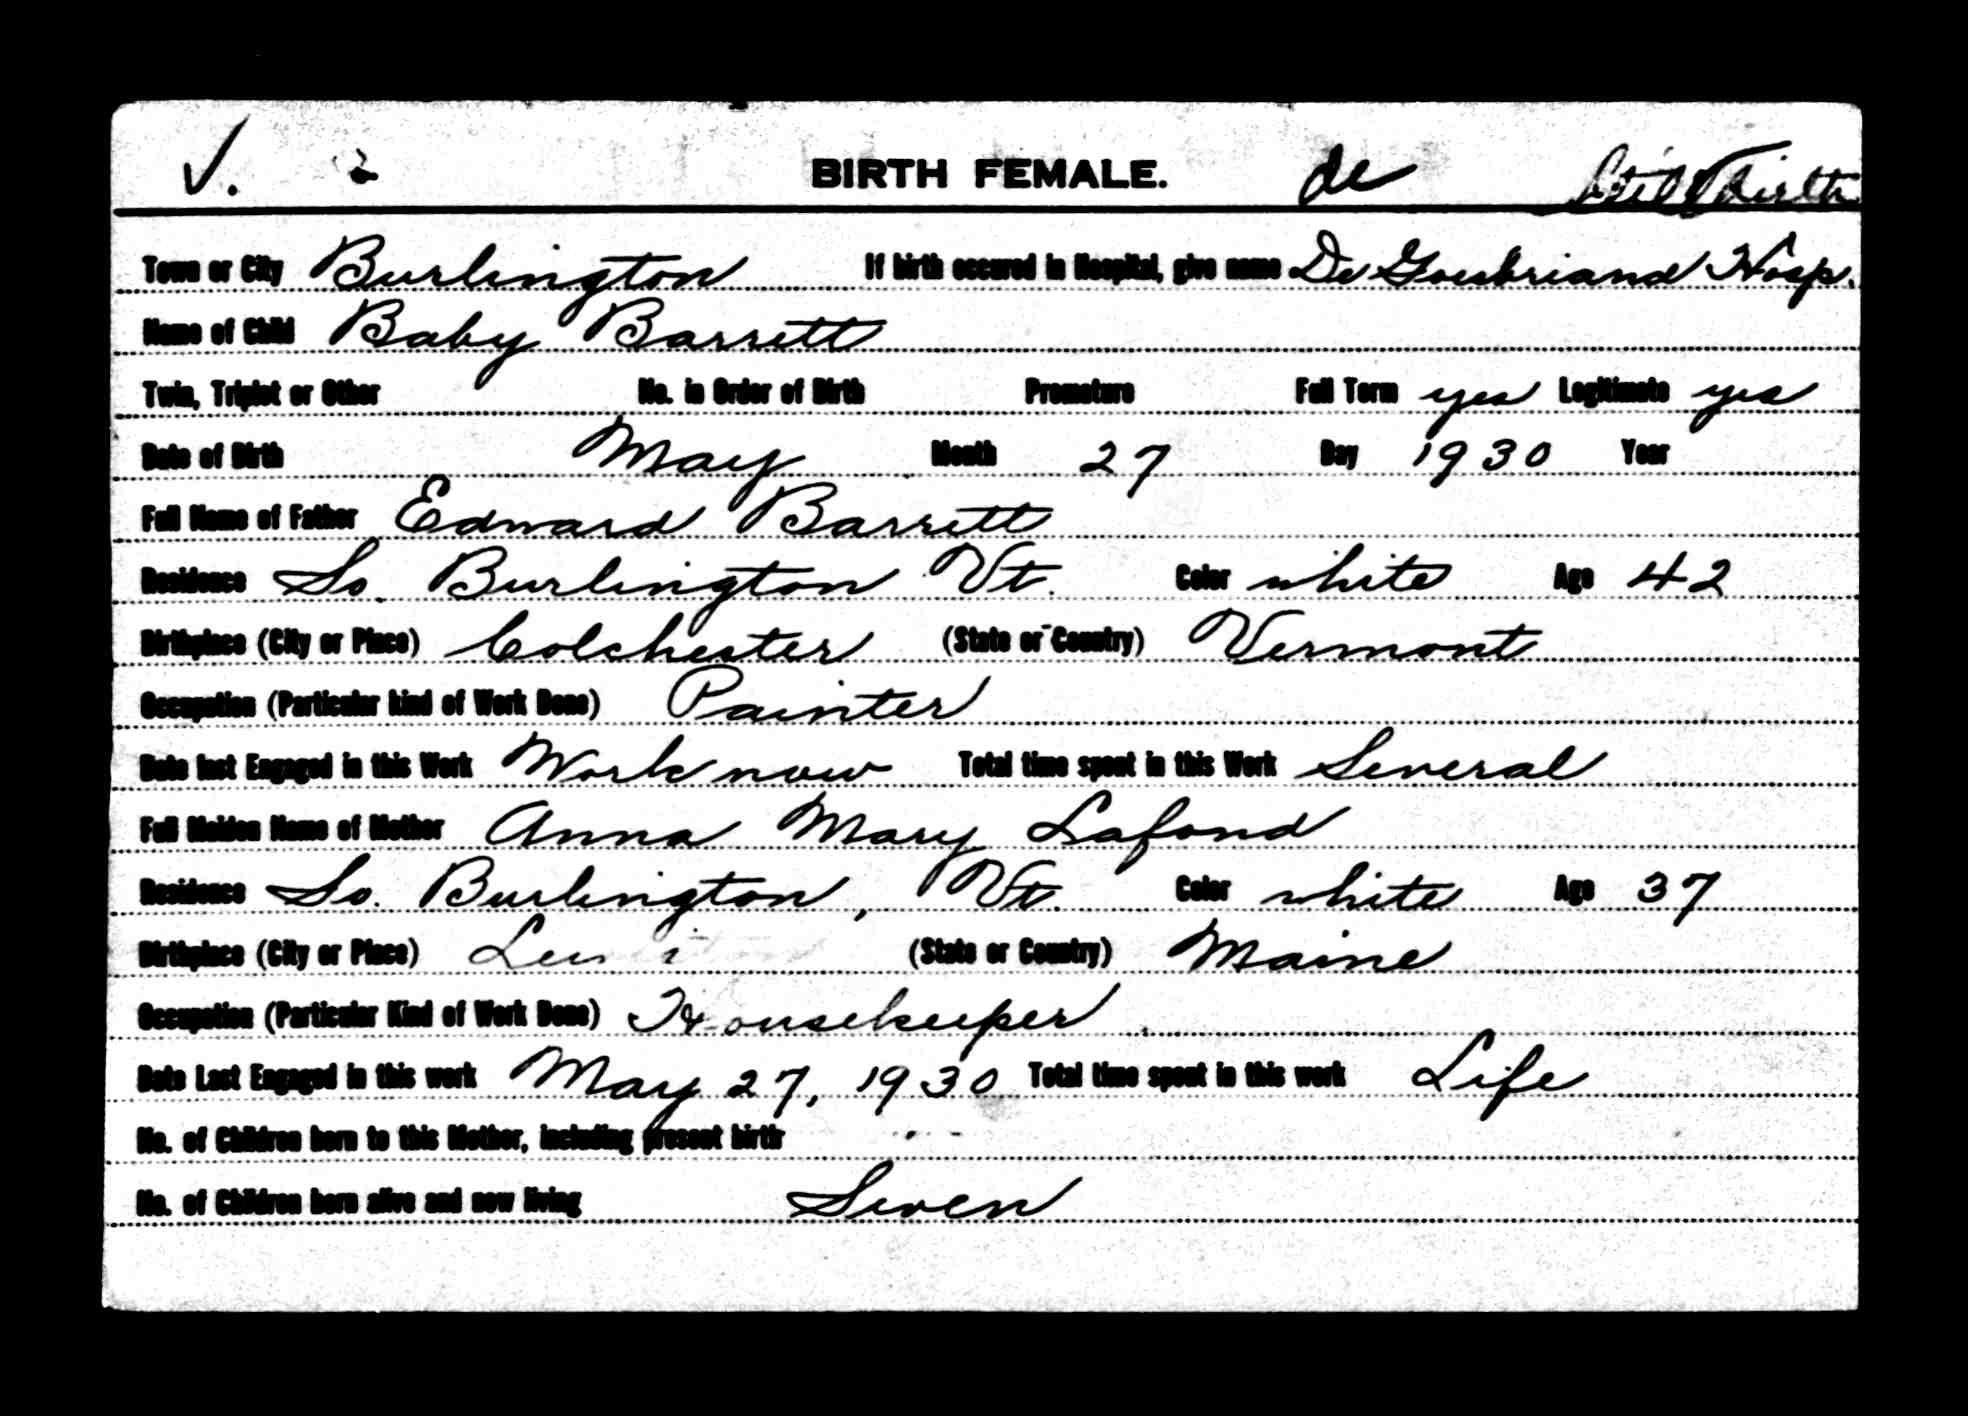 √. 2 BIRTH FEMALE. de Still Birth
Town or City Burlington If birth occured in Hospital, give name De Goesbriand Hosp.
Name of Child Baby Barrett
Twin, Triplet or Other No. in Order of Birth Premature Full Term yes Legitimate yes
Date of Birth May Month 27 Day 1930 Year
Full Name of Father Edward Barrett
Residence So. Burlington Vt. Color white Age 42
Birthplace (City or Place) Colchester (State or Country) Vermont
Occupation (Particular kind of Work Done) Painter
Date last Engaged in this Work Work now Total time spent in this Work Several
Full Maiden Name of Mother Anna Mary Lafond
Residence So. Burlington, Vt. Color white Age 37
Birthplace (City or Place) (State or Country) Maine
Occupation (Particular Kind of Work Done) Housekeeper
Date Last Engaged in this work May 27, 1930 Total time spent in this work Life
No. of Children born to this Mother, including present birth
No. of Children born alive and now living Seven